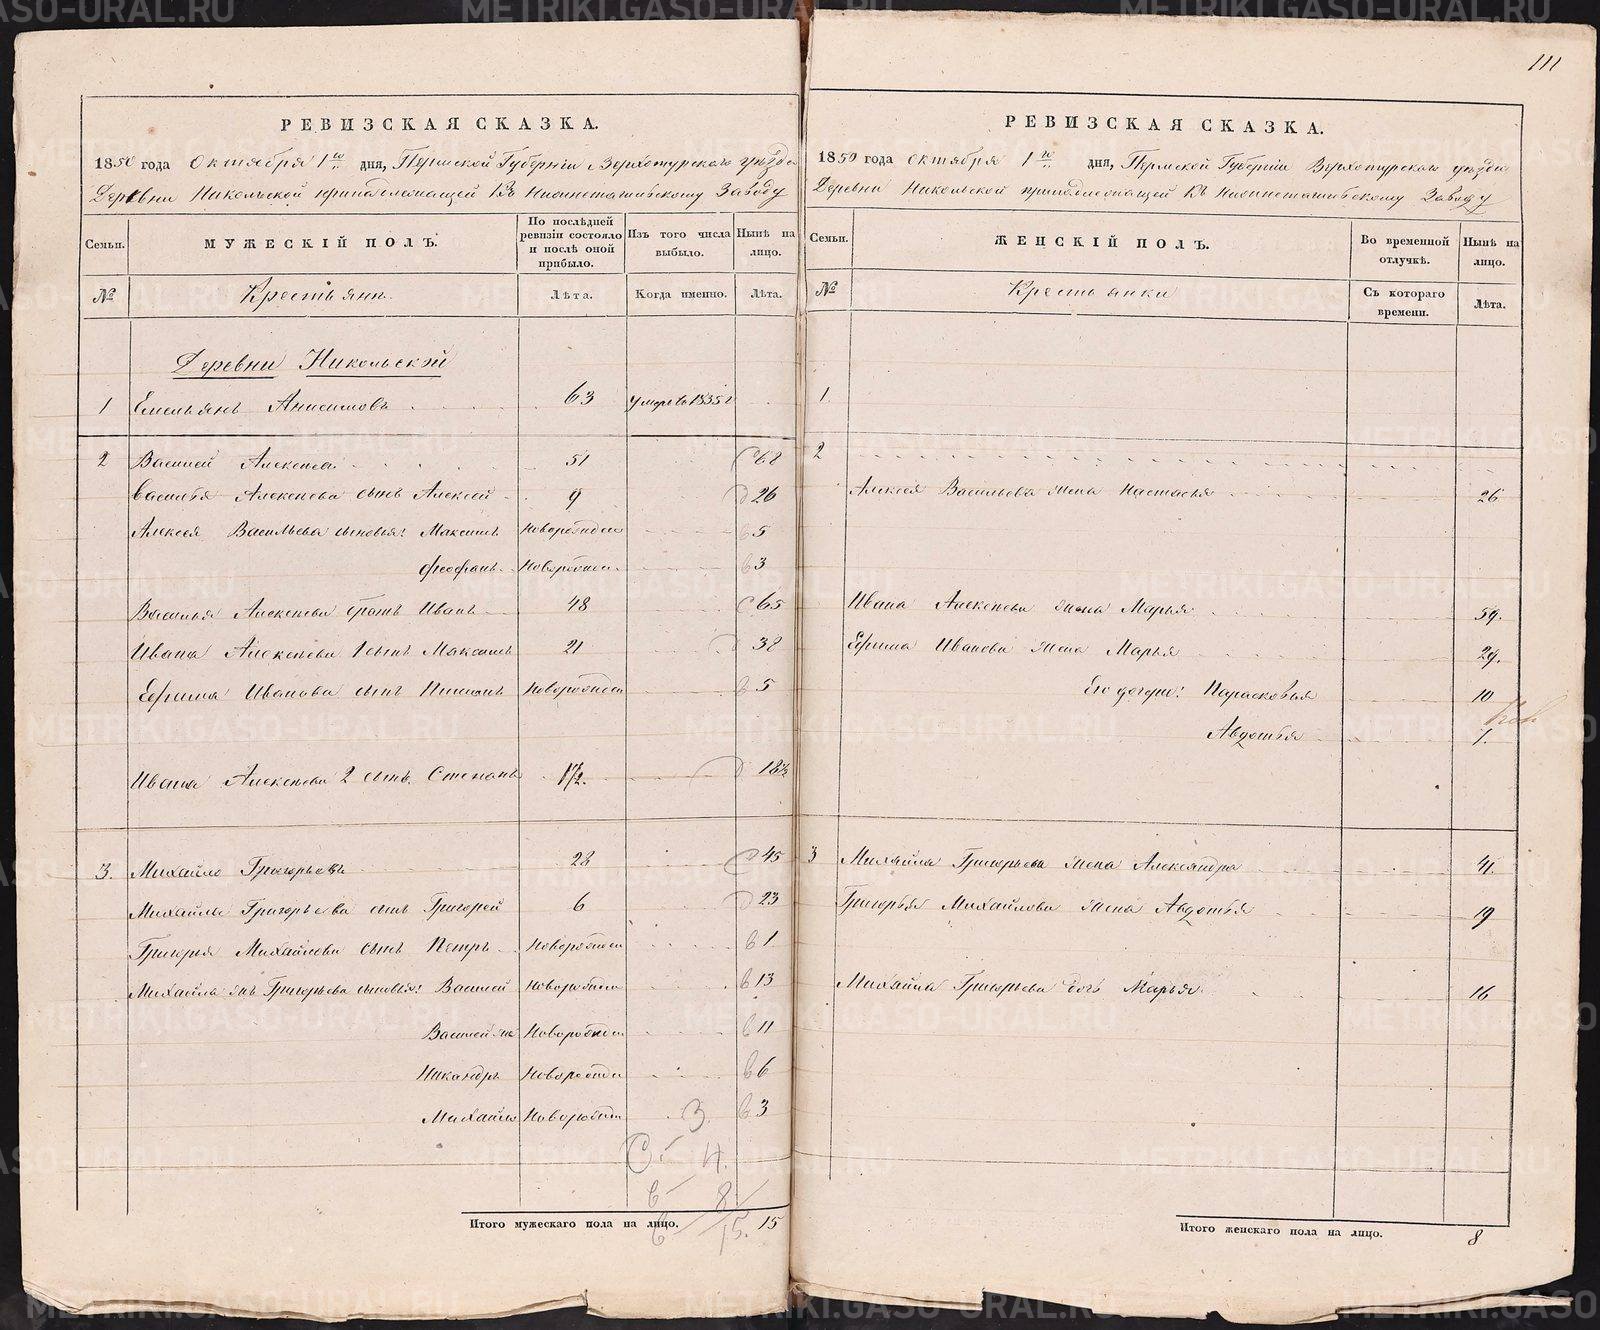 111
РЕВИЗСКАЯ СКАЗКА.
1850 года Октября 1го дня, Пермской Губерніи Верхотурскаго уѣзда
Деревни Никольской принадлежащей къ Нижнетагильскому Заводу
Семьи.
МУЖЕСКІЙ ПОЛЪ.
По послѣдней ревизіи состояло и послѣ оной прибыло.
Изъ того числа выбыло.
Нынѣ на лицо.
№
Крестьяне.
Лѣта.
Когда именно.
Лѣта.
Деревни Никольской
1 Емельянъ Анисимовъ 63 умеръ въ 1835 г
2 Василей Алексѣевъ 51 68
Василья Алексѣева сынъ Алексѣй 9 26
Алексея Васильева сыновья: Максимъ Новорожден 5
Феофанъ Новорожден 3
Василья Алексѣева братъ Иванъ 48 65
Ивана Алексѣева 1 сынъ Максимъ 21 38
Ефима Иванова сынъ Новорожден 5
Ивана Алексѣева 2 сынъ Степанъ 1½. 18½
3. Михайло Григорьевъ 28 45
Михайлы Григорьева сынъ Григорей 6 23
Григорья Михайлова сынъ Петръ Новорожден 1
Михайлы Григорьева сыновья: Василей Новорожден 13
Василей же Новорожден 11
Никандръ Новорожден 6
Михайло Новорожден 3
3
С. 4.
8
15.
Итого мужескаго пола на лицо. 15
РЕВИЗСКАЯ СКАЗКА.
1850 года Октября 1го дня, Пермской Губерніи Верхотурскаго уѣзда
Деревни Никольской принадлежащей къ Нижнетагильскому Заводу
Семьи.
ЖЕНСКІЙ ПОЛЪ.
Во временной отлучкѣ.
Нынѣ на лицо.
№
Крестьянки
Съ котораго времени.
Лѣта.
1.
2
Алексея Васильева жена Настасья 26
Ивана Алексѣева жена Марья 59.
Ефима Иванова жена Марья 29.
Его дочери: Парасковья 10
Авдотья 1.
3 Михайла Григорьева жена Александра 41.
Григорья Михайлова жена Авдотья 19
Михайла Григорьева дочь Марья 16
Итого женскаго пола на лицо. 8
METRIKI.GASO-URAL.RU